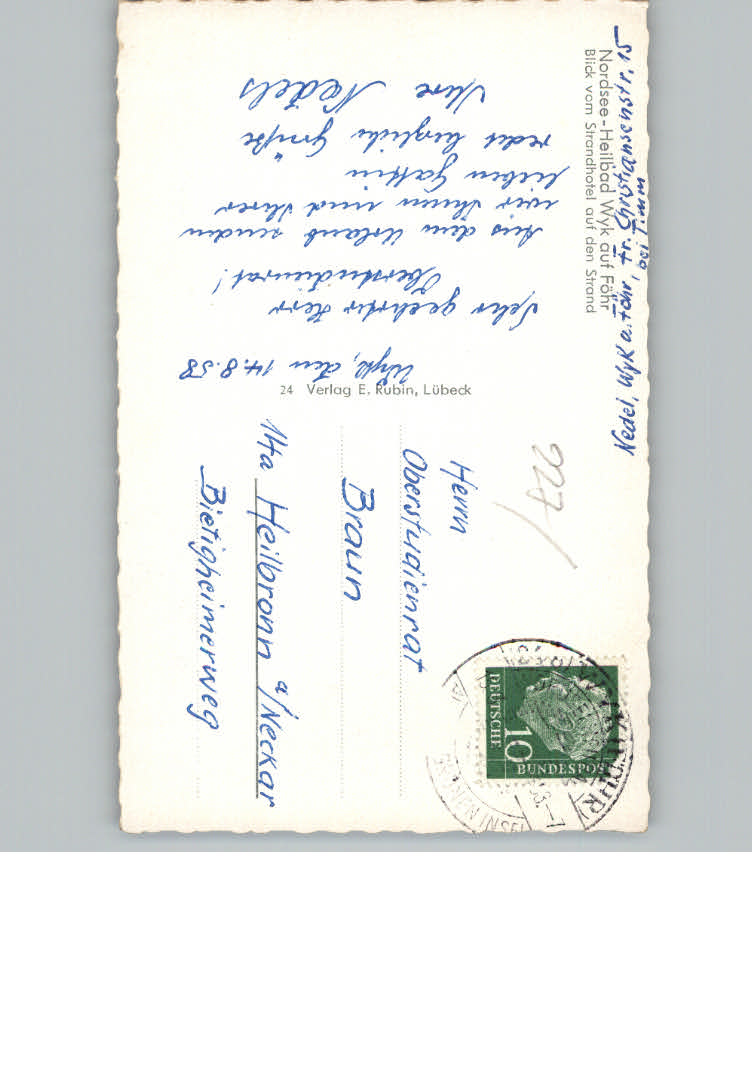 Nordsee-Heilbad Wyk auf Föhr
Blick vom Strandhotel auf den Strand
Nedel, Wyk a. Föhr, Fr. Christiansenstr. 15
bei Timm
Wyk, den 14.8.58
Sehr geehrter Herr
Oberstudienrat!
Aus dem Urlaub senden
wir Ihnen und Ihrer
lieben Gattin
recht herzliche Grüße
Ihre Nedels
24 Verlag E. Rubin, Lübeck
227/
Herrn
Oberstudienrat
Braun
14a Heilbronn a/Neckar
Bietigheimerweg
DEUTSCHE
10
BUNDESPOST